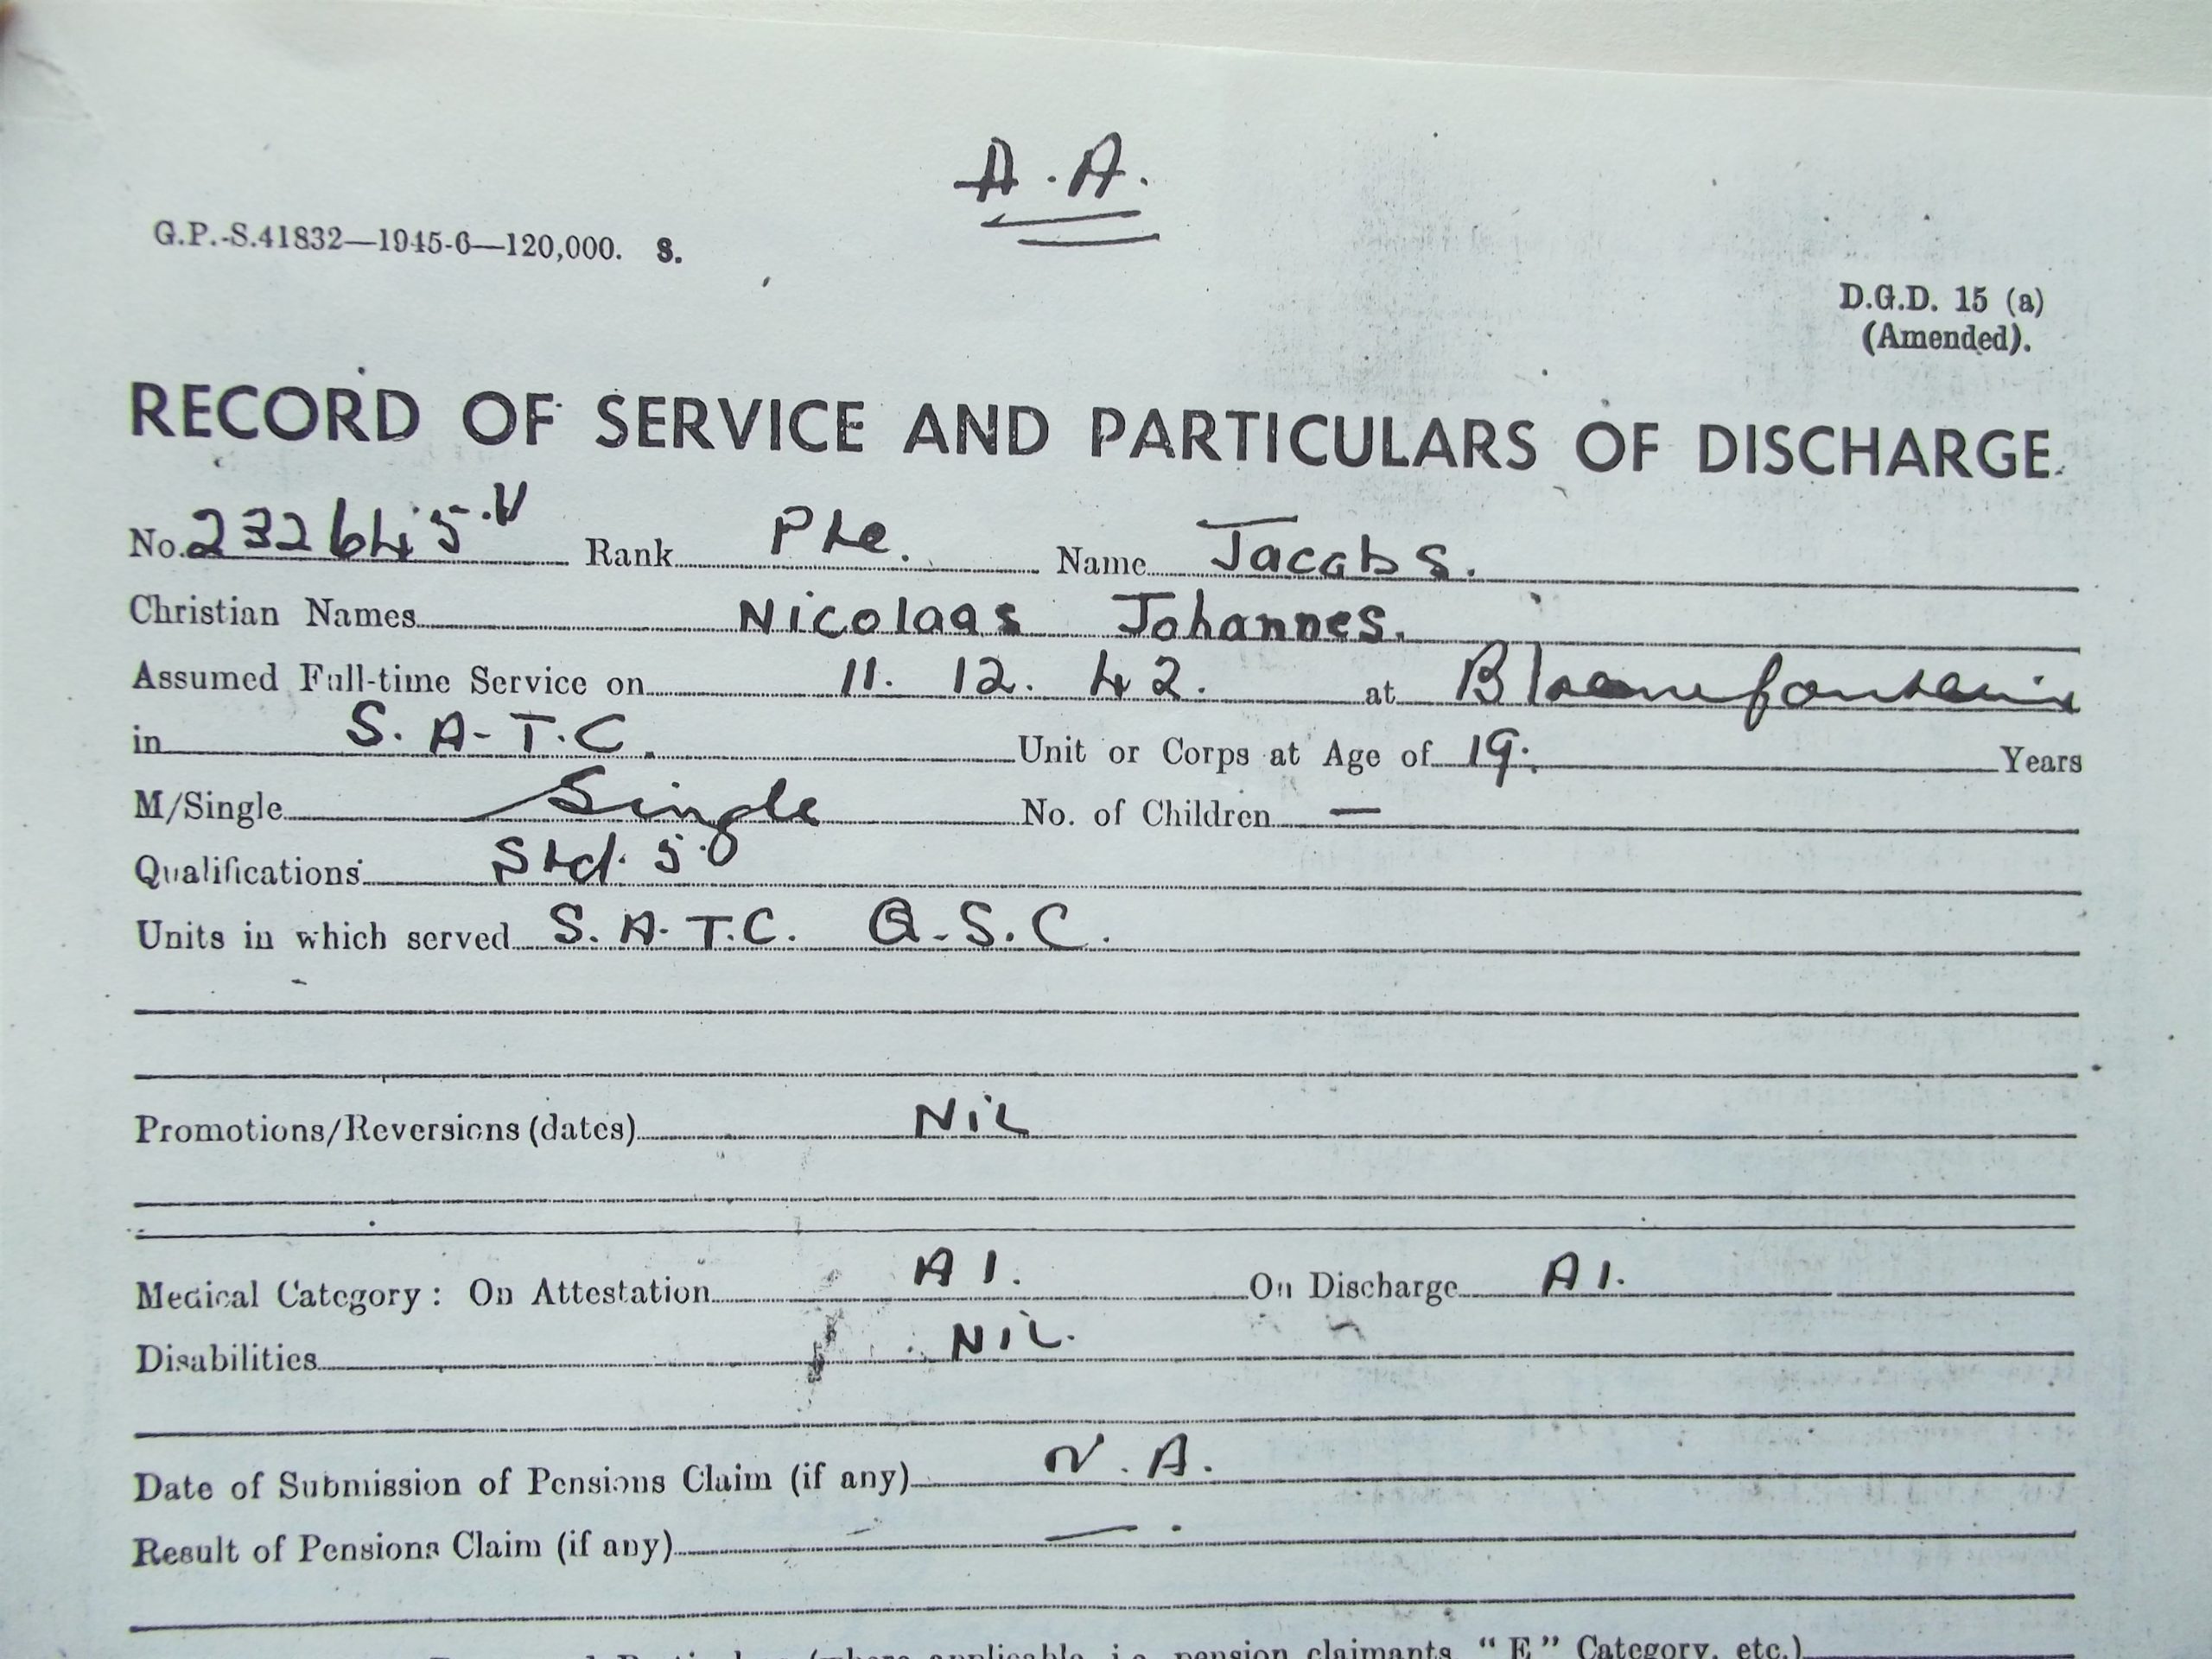 A.A.
G.P.-S.41832—1945-6—120,000. S.
D.G.D. 15 (a)
(Amended).
RECORD OF SERVICE AND PARTICULARS OF DISCHARGE.
No. 232645.V Rank Pte. Name Jacobs.
Christian Names Nicolaas Johannes.
Assumed Full-time Service on 11. 12. 42. at Bloemfontein
in S.A.T.C. Unit or Corps at Age of 19. Years
M/Single Single No. of Children —
Qualifications Std. 5.
Units in which served S.A.T.C. Q.S.C.
Promotions/Reversions (dates) Nil
Medical Category: On Attestation A1. On Discharge A1.
Disabilities Nil.
Date of Submission of Pensions Claim (if any) N.A.
Result of Pensions Claim (if any) —.
(where applicable, i.e. pension claimants, "E" Category, etc.)